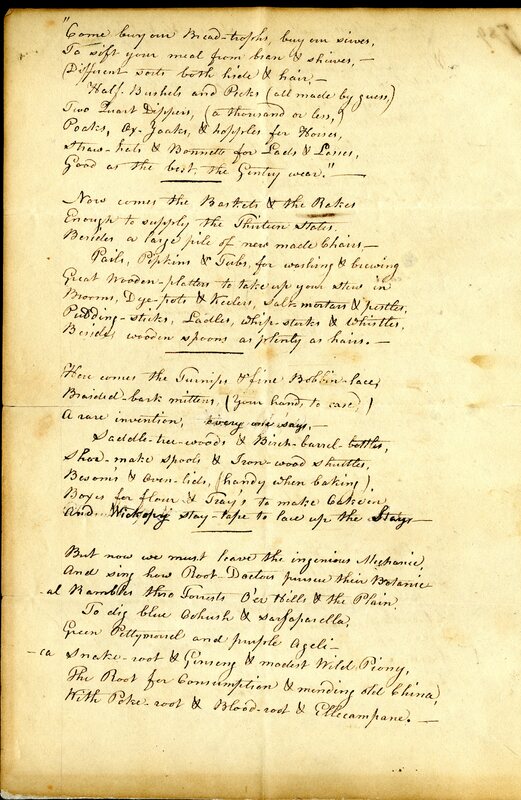 "Come buy our Bread-troughs, buy our sives,
To sift your meal from bran & shives,—
Different sorts both hide & hair,—
Half-Bushels and Pecks (all made by guess,)
Two Quart Dippers, (a thousand or less,)
Poaks, Ox-Yoaks, & hopples for Horses,
Straw-hats & Bonnetts for Lads & Lasses,
Good as the best, the Gentry wear."—
Now comes the Baskets & the Rakes
Enough to supply the Thirteen States,
Besides a large pile of new made Chairs—
Pails, Pipkins & Tubs, for washing & brewing
Great Wooden-platters to take up your stew in
Brooms, Dye-pots & Keelers, Salt-mortars & pestles,
Pudding-sticks, Ladles, whip-stocks & Whistles,
Besides wooden spoons as plenty as hairs.—
Here comes the Turnips & fine Bobbin-lace,
Braided-bark mittens, (your hands to case,)
A rare invention, every one says,—
Saddle-tree-woods & Birch-barrel-bottles,
Shoe-make spools & Iron-wood shuttles,
Besom's & Oven-lids, (handy when baking),
Boxes for flour & Tray's to make Cake in
And Wickopy stay-tape to lace up the Stays—
But now we must leave the ingenious Mechanic,
And sing how Root-Doctors pursue their Botanic
-al Rambles thro Forrests O'er Hills & the Plain,
To dig blue Cohush & Sarsaparella,
Green Pettymorel and purple Ageli-
-ca Snake-root & Ginseng & modest Wild Piony,
The Root for Consumption & mending old China,
With Poke-root & Blood-root & Ellecampane.—